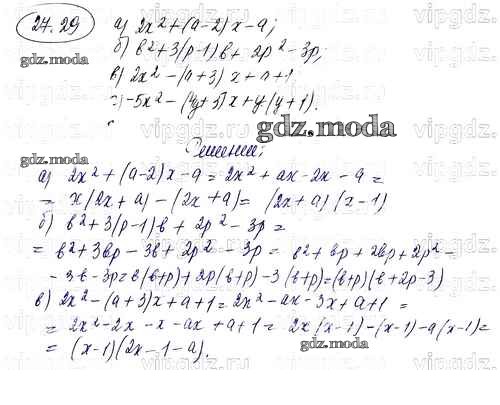 24.29
а) 2x² + (a-2)x - a;
б) b² + 3(p-1)b + 2p² - 3p;
в) 2x² - (a+3)x + a + 1;
г) -5x² - (4y+5)x + y(y+1).
gdz.moda
gdz.moda
Решение:
а) 2x² + (a-2)x - a = 2x² + ax - 2x - a =
= x(2x + a) - (2x + a) = (2x + a)(x - 1)
б) b² + 3(p-1)b + 2p² - 3p =
= b² + 3bp - 3b + 2p² - 3p = b² + bp + 2bp + 2p² -
- 3b - 3p = b(b+p) + 2p(b+p) - 3(b+p) = (b+p)(b+2p-3)
в) 2x² - (a+3)x + a + 1 = 2x² - ax - 3x + a + 1 =
= 2x² - 2x - x - ax + a + 1 = 2x(x-1) - (x-1) - a(x-1) =
= (x-1)(2x-1-a).
gdz.moda
gdz.moda